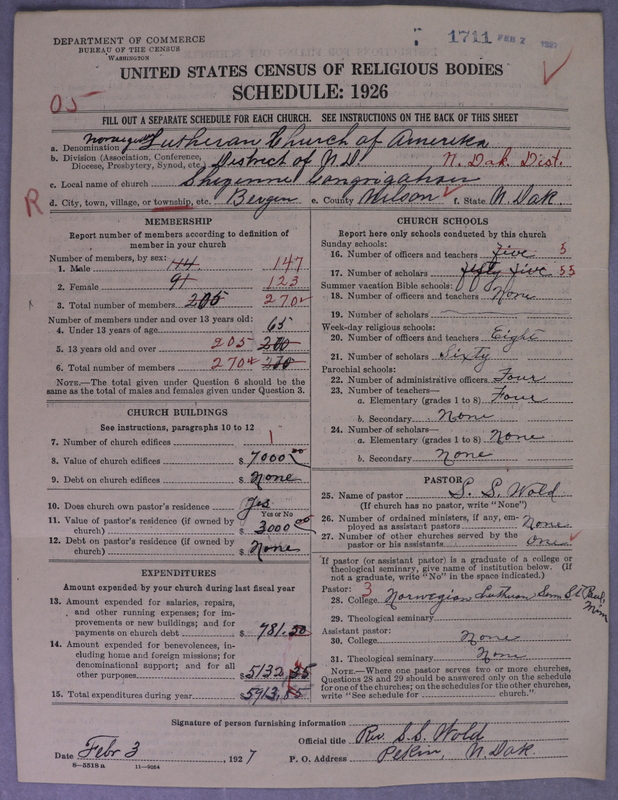 DEPARTMENT OF COMMERCE
BUREAU OF THE CENSUS
WASHINGTON
1711 FEB 7 1927
UNITED STATES CENSUS OF RELIGIOUS BODIES
SCHEDULE: 1926
05
FILL OUT A SEPARATE SCHEDULE FOR EACH CHURCH. SEE INSTRUCTIONS ON THE BACK OF THIS SHEET
a. Denomination Norwegian Lutheran Church of Amerika
b. Division (Association, Conference, Diocese, Presbytery, Synod, etc.) District of N.D. N. Dak. Dist.
c. Local name of church Sheyenne Congrigation
R
d. City, town, village, or township, etc. Bergen e. County Nelson f. State N. Dak.
MEMBERSHIP
Report number of members according to definition of
member in your church
Number of members, by sex:
1. Male 114 147
2. Female 91 123
3. Total number of members 205 270
Number of members under and over 13 years old:
4. Under 13 years of age 65
5. 13 years old and over 205
6. Total number of members 270 270
NOTE.—The total given under Question 6 should be the
same as the total of males and females given under Question 3.
CHURCH BUILDINGS
See instructions, paragraphs 10 to 12
7. Number of church edifices 1
8. Value of church edifices $ 7000 00
9. Debt on church edifices $ None
10. Does church own pastor's residence? Yes
Yes or No
11. Value of pastor's residence (if owned by
church) $ 3000 00
12. Debt on pastor's residence (if owned by
church) $ None
EXPENDITURES
Amount expended by your church during last fiscal year
13. Amount expended for salaries, repairs,
and other running expenses; for im-
provements or new buildings; and for
payments on church debt $ 781.50
14. Amount expended for benevolences, in-
cluding home and foreign missions; for
denominational support; and for all
other purposes $ 5132.35
15. Total expenditures during year $ 5913.85
CHURCH SCHOOLS
Report here only schools conducted by this church
Sunday schools:
16. Number of officers and teachers five 5
17. Number of scholars fifty five 55
Summer vacation Bible schools:
18. Number of officers and teachers None
19. Number of scholars
Week-day religious schools:
20. Number of officers and teachers Eight
21. Number of scholars Sixty
Parochial schools:
22. Number of administrative officers Four
23. Number of teachers—
a. Elementary (grades 1 to 8) Four
b. Secondary None
24. Number of scholars—
a. Elementary (grades 1 to 8) None
b. Secondary None
PASTOR
25. Name of pastor S. S. Wold
(If church has no pastor, write "None")
26. Number of ordained ministers, if any, em-
ployed as assistant pastors None
27. Number of other churches served by the
pastor or his assistants One
If pastor (or assistant pastor) is a graduate of a college or
theological seminary, give name of institution below. (If
not a graduate, write "No" in the space indicated.)
Pastor: 3
28. College Norwegian Lutheran Sem St Paul, Minn
29. Theological seminary
Assistant pastor:
30. College None
31. Theological seminary None
NOTE.—Where one pastor serves two or more churches,
Questions 28 and 29 should be answered only on the schedule
for one of the churches; on the schedules for the other churches,
write "See schedule for church."
Signature of person furnishing information
Official title Rev. S.S. Wold
Date Febr 3, 1927 P. O. Address Pekin, N. Dak.
8—5518 a 11—9054